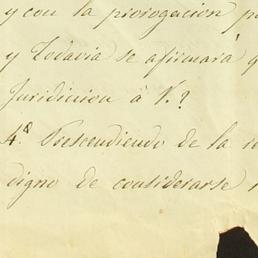 y con la prorogacion
y Todavia se afirmará
Juridicion á V.?
4ª Prescendiendo de la
digno de considerarse